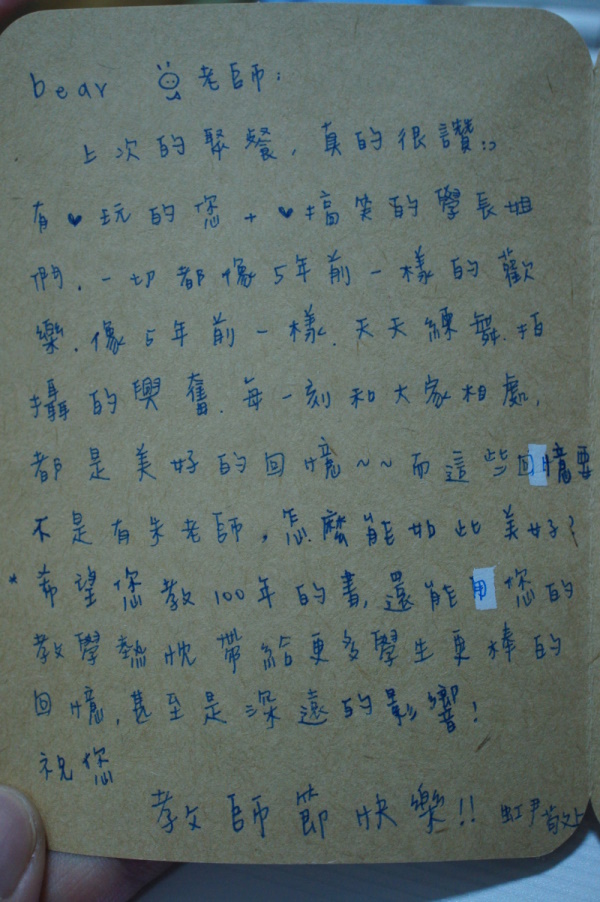 bear 老師:
上次的聚餐,真的很讚:)
有♥玩的您+♥搞笑的學長姐
們.一切都像5年前一樣的歡
樂.像5年前一樣.天天練舞.拍
攝的興奮.每一刻和大家相處,
都是美好的回憶~~而這些回憶要
不是有朱老師,怎麼能如此美好?
*希望您教100年的書,還能用您的
教學熱忱帶給更多學生更棒的
回憶,甚至是深遠的影響!
祝您
教師節快樂!! 虹尹敬上